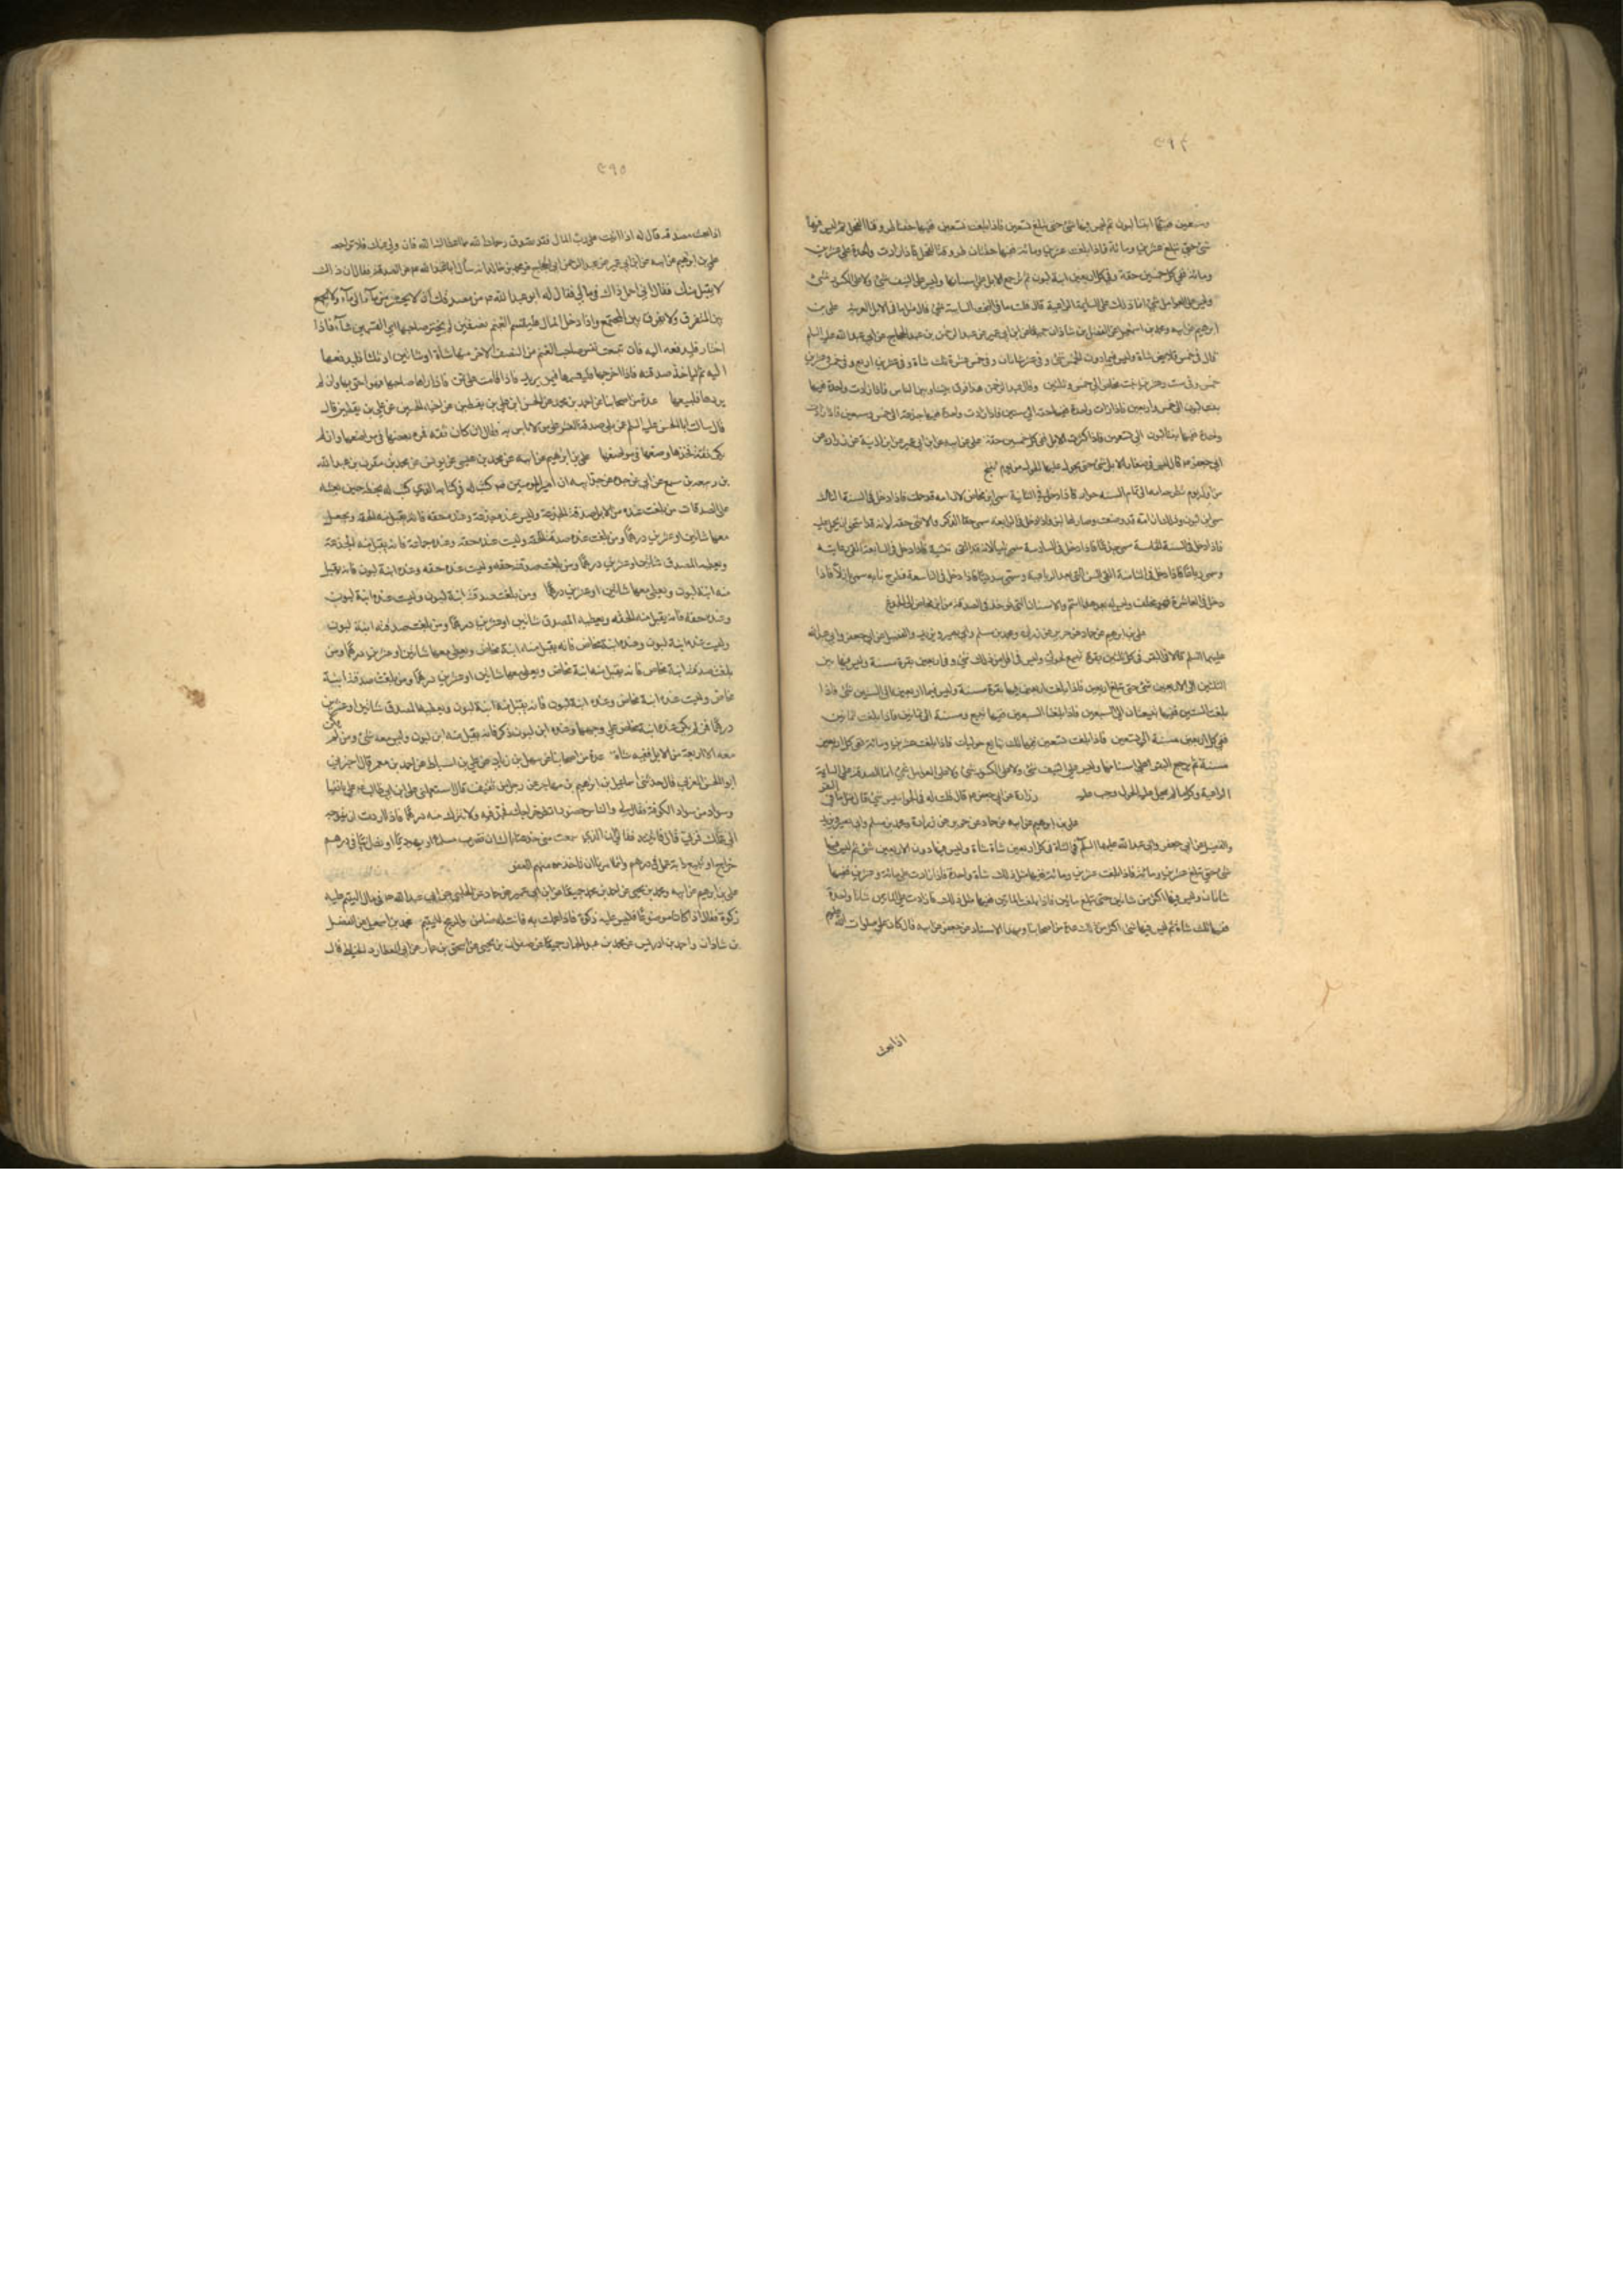 ٢٩٤
وسبعين ففيها ابنتا لبون ثم ليس فيها شئ حتى تبلغ تسعين فاذا بلغت تسعين ففيها حقتان طروقتا الفحل ثم ليس فيها
شئ حتى تبلغ عشرين ومائة فاذا بلغت عشرين ومائة ففيها حقتان طروقتا الفحل فاذا زادت واحدة على عشرين
ومائة ففي كل خمسين حقة وفي كل اربعين ابنة لبون ثم ترجع الابل على اسنانها وليس على النيف شئ ولا على الكسور شئ
وليس على العوامل شئ انما ذلك على السايمة الراعية قال قلت ما في البخت السايمة شئ قال مثل ما في الابل العربية علي بن
ابرهيم عن ابيه ومحمد بن اسمعيل عن الفضل بن شاذان جميعا عن ابن ابي عمير عن عبد الرحمن بن عبد الحجاج عن ابي عبد الله عليه السلم
قال في خمس قلايص شاة وليس فيما دون الخمس شئ وفي عشر شاتان وفي خمس عشرة ثلث شاة وفي عشرين اربع وفي خمس وعشرين
خمس وفي ست وعشرين بنت مخاض الى خمس وثلثين وقال عبد الرحمن هذا فرق بيننا وبين الناس فاذا زادت واحدة ففيها
بنت لبون الى خمس واربعين فاذا زادت واحدة ففيها حقة الى ستين فاذا زادت واحدة ففيها جذعة الى خمس وسبعين فاذا زادت
واحدة ففيها بنتا لبون الى تسعين فاذا كثرت الابل ففي كل خمسين حقة علي عن ابيه عن ابن ابي عمير عن ابن اذينة عن زرارة عن
ابي جعفر ع قال ليس في صغار الابل شئ حتى يحول عليها الحول من يوم تنتج
من اول يوم تطرحه امه الى تمام السنه حوار فاذا دخل في الثانية سمي ابن مخاض لان امه قد حملت فاذا دخل في السنة الثالثة
سمي ابن لبون وذلك ان امه قد وضعت وصار لها لبن فاذا دخل في الرابعه سمي حقا الذكر والانثى حقه لانه قد استحق ان يحمل عليه
فاذا دخل في السنة الخامسة سمي جذعا فاذا دخل في السادسة سمي ثنيا لانه قد القى ثنيته فاذا دخل في السابعة القى رباعيته
وسمي رباعيا فاذا دخل في الثامنة القى السن التي بعد الرباعية وسمي سديسا فاذا دخل في التاسعة فطرح نابه سمي بازلا فاذا
دخل في العاشرة فهو مخلف وليس له بعد هذا اسم والاسنان التي تؤخذ في الصدقة من ابن مخاض الى الجذع
علي بن ابرهيم عن حماد عن حريز عن زرارة ومحمد بن مسلم وابي بصير وبريد والفضيل عن ابي جعفر وابي عبد الله
عليهما السلم قالا في البقر في كل ثلثين بقرة تبيع حولي وليس في اقل من ذلك شئ وفي اربعين بقرة مسنة وليس فيما بين
الثلثين الى الاربعين شئ حتى تبلغ اربعين فاذا بلغت اربعين ففيها بقرة مسنة وليس فيما اربعين الى الستين شئ فاذا
بلغت الستين ففيها تبيعتان الى السبعين فاذا بلغت السبعين ففيها تبيع ومسنة الى ثمانين فاذا بلغت ثمانين
ففي كل اربعين مسنة الى تسعين فاذا بلغت تسعين ففيها ثلث تبايع حوليات فاذا بلغت عشرين ومائة ففي كل اربعين
مسنة ثم ترجع البقر على اسنانها وليس على النيف شئ ولا على الكسور شئ ولا على العوامل شئ انما الصدقة على السايمة
الراعية وكل ما لم يحل عليه الحول وجب عليه زرارة عن ابي جعفر ع قال قلت له في الجواميس شئ قال مثل ما في البقر
علي بن ابرهيم عن ابيه عن حماد عن حريز عن زرارة ومحمد بن مسلم وابي بصير وبريد
والفضيل عن ابي جعفر وابي عبد الله عليهما السلم في الشاة في كل اربعين شاة شاة وليس فيما دون الاربعين شئ ثم ليس فيها
شئ حتى تبلغ عشرين ومائة فاذا بلغت عشرين ومائة ففيها مثل ذلك شاة واحدة فاذا زادت على مائة وعشرين ففيها
شاتان وليس فيها اكثر من شاتين حتى تبلغ مائتين فاذا بلغت المائتين ففيها مثل ذلك فاذا زادت على المائتين شاة واحدة
ففيها ثلث شاة ثم ليس فيها شئ اكثر من ذلك عدة من اصحابنا وبهذا الاسناد عن جعفر عن ابيه قال كان علي صلوات الله عليهم
اذا بعث
٢٩٥
اذا بعث مصدقه قال له اذا اتيت على رب المال فقل تصدق رحمك الله مما اعطاك الله فان ولى عنك فلا تراجعه
علي بن ابرهيم عن ابيه عن ابن ابي عمير عن عبد الرحمن ابن الحجاج عن محمد بن خالد انه سأل ابا عبد الله ع عن الصدقة فقال ان ذلك
لا يقبل منك فقال اني احمل ذلك في مالي فقال له ابو عبد الله ع مر مصدقك ان لا يحشر من ماء الى ماء ولا يجمع
بين المتفرق ولا يفرق بين المجتمع واذا دخل المال فليقسم الغنم نصفين ثم يخير صاحبها اي القسمين شاء فاذا
اختار فليدفعه اليه فان تتبعت نفس صاحب الغنم من النصف الاخر منها شاة او شاتين او ثلثا فليدفعها
اليه ثم لياخذ صدقته فاذا اخرجها فليقسمها فيمن يريد فاذا قامت على ثمن فاذا ارادها صاحبها فهو احق بها وان لم
يردها فليبعها عدة من اصحابنا عن احمد بن محمد عن الحسن ابن علي بن يقطين عن اخيه الحسين عن علي بن يقطين قال
قال سالت ابا الحسن عليه السلم عمن يلي صدقة العشر على من لا باس به فقال ان كان ثقة فمره يضعها في مواضعها وان لم
يكن ثقة فخذها وضعها في مواضعها علي بن ابرهيم عن ابيه عن محمد بن عيسى عن يونس عن محمد بن مقرن بن عبد الله
بن زمعة بن سبيع عن ابيه عن جده عن جد ابيه ان امير المومنين ع كتب له في كتابه الذي كتب له بخطه حين بعثه
على الصدقات من بلغت عنده من الابل صدقة الجذعة وليس عنده جذعة وعنده حقه فانه يقبل منه الحقه ويجعل
معها شاتين او عشرين درهما ومن بلغت عنده صدقة الحقة وليست عنده حقه وعنده جذعة فانه يقبل منه الجذعة
ويعطيه المصدق شاتين او عشرين درهما ومن بلغت صدقته حقه وليست عنده حقه وعنده ابنة لبون فانه يقبل
منه ابنة لبون ويعطي معها شاتين او عشرين درهما ومن بلغت صدقته ابنة لبون وليست عنده ابنة لبون
وعنده حقه فانه يقبل منه الحقه ويعطيه المصدق شاتين او عشرين درهما ومن بلغت صدقته ابنة لبون
وليست عنده ابنة لبون وعنده ابنة مخاض فانه يقبل منه ابنة مخاض ويعطي معها شاتين او عشرين درهما ومن
بلغت صدقته ابنة مخاض فانه يقبل منه ابنة مخاض ويعطي معها شاتين او عشرين درهما ومن بلغت صدقته ابنة
مخاض وليست عنده ابنة مخاض وعنده ابنة لبون فانه يقبل منه ابنة لبون ويعطيه المصدق شاتين او عشرين
درهما فمن لم يكن عنده ابنة مخاض على وجهها وعنده ابن لبون ذكر فانه يقبل منه ابن لبون وليس معه شئ ومن لم يكن
معه الا اربعة من الابل ففيه شاة عدة من اصحابنا عن سهل بن زياد عن علي بن اسباط عن احمد بن معمر قال اخبرني
ابو الحسن العرني قال حدثني اسمعيل بن ابرهيم بن مهاجر عن رجل من ثقيف قال استعملني علي ابن ابي طالب ع على بانقيا
وسواد من سواد الكوفة فقال لي والناس حضور انظر خراجك فجد فيه ولا تترك منه درهما فاذا اردت ان تتوجه
الى عملك فمر بي قال فاتيته فقال لي ان الذي سمعت مني خدعة اياك ان تضرب مسلما او يهوديا او نصرانيا في درهم
خراج او تبيع دابة عمل في درهم وانما امرنا ان ناخذ منهم العفو
علي بن ابرهيم عن ابيه ومحمد بن يحيى عن احمد بن محمد جميعا عن ابن ابي عمير عن حماد عن الحلبي عن ابي عبد الله ع في مال اليتيم عليه
زكوة فقال اذا كان موضوعا فليس عليه زكوة فاذا عملت به فانت له ضامن والربح لليتيم محمد بن اسمعيل عن الفضل
بن شاذان واحمد بن ادريس عن محمد بن عبد الجبار جميعا عن صفوان بن يحيى عن اسحق بن عمار عن ابي العطارد الخياط قال